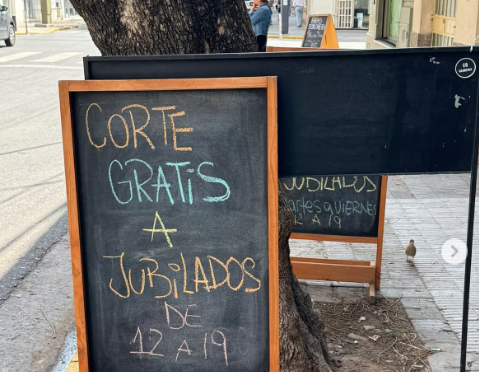 CORTE
GRATIS
A
JUBILADOS
DE
12 A 19
JUBILADOS
VIERNES
A 19